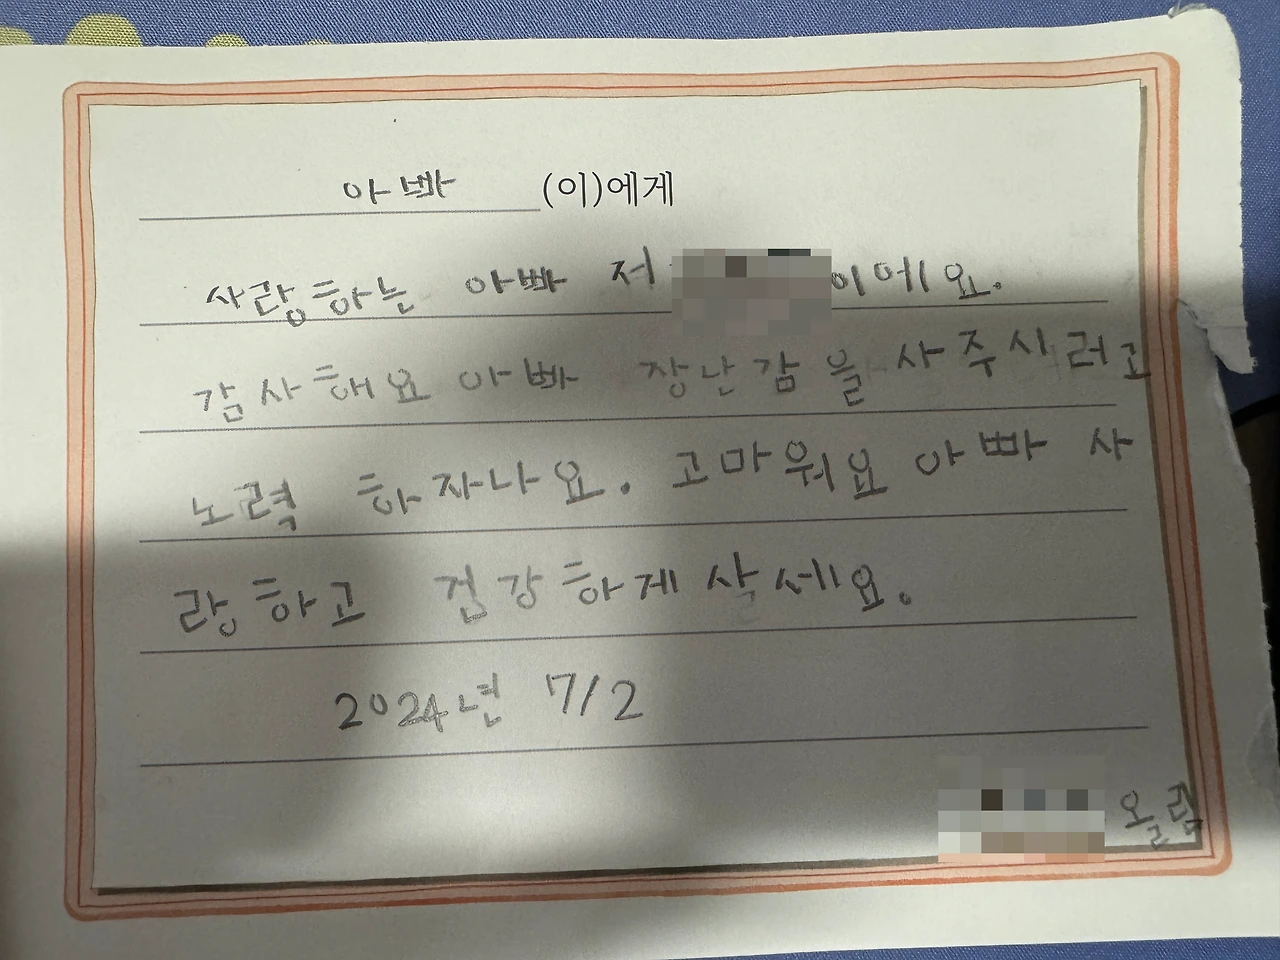 아빠 (이)에게
사랑하는 아빠 저 이에요.
감사해요 아빠 장난감을 사주시러고
노력 하자나요. 고마워요 아빠 사
랑하고 건강하게 삭세요.
2024년 7/2
오림